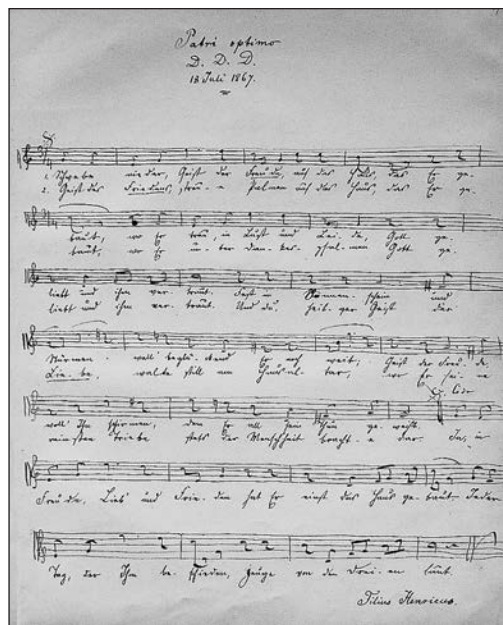 Patri optimo
D. D. D.
18 Juli 1867.
1. Schwebe nieder, Geist der Freude, auf das Haus, das Er ge-
2. Geist des Friedens, streu-e Palmen auf das Haus, das Er ge-
baut, wo Er treu, in Lust und Leide, Gott ge-
baut, wo Er un-ter Dan-kes-psal-men Gott ge-
liebt und ihm ver-traut. Fest in Son-nen-schein und
liebt und ihm ver-traut. Und du, heil-ger Geist der
Stürmen wall' beglückend Er noch weit; Geist der Freu-de,
Lie-be, walte still am Hausal-tar, wo Er sei-ne
woll' Ihn schirmen, dem Er all sein Thun ge-weiht.
reinsten Triebe stets der Menschheit bracht-e dar. Ja, in
Freude, Lieb' und Frie-den hat Er einst das Haus ge-baut. Jeder
Tag, der Ihm be-schieden, zeuge von den Drei-en laut.
Filius Henricus.